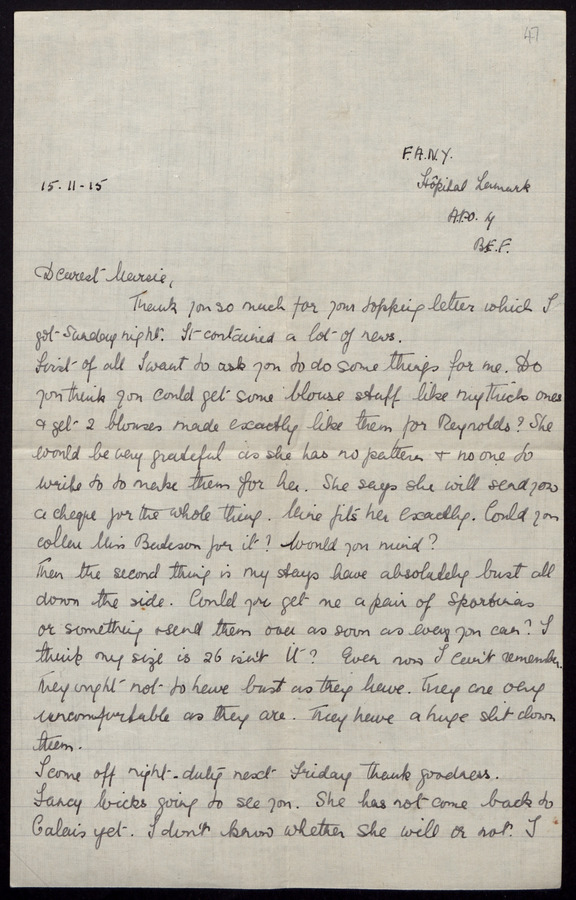 47
F.A.N.Y.
15-11-15
Hôpital Lamark
A.P.O. 4
B.E.F.
Dearest Marsie,
Thank you so much for your topping letter which I
got Sunday night. It contained a lot of news.
First of all I want to ask you to do some things for me. Do
you think you could get some blouse stuff like my thick ones
& get 2 blouses made exactly like them for Reynolds? She
would be very grateful as she has no pattern & no one to
write to to make them for her. She says she will send you
a cheque for the whole thing. Mine fits her exactly. Could you
collar Miss for it? Would you mind?
Then the second thing is my stays have absolutely bust all
down the side. Could you get me a pair of
or something & send them over as soon as ever you can? I
think my size is 26 isn't it? Even now I can't remember.
They ought not to have bust as they have. They are very
uncomfortable as they are. They have a huge slit down
them.
I come off night-duty next Friday thank goodness.
Fancy Wicks going to see you. She has not come back to
Calais yet. I don't know whether she will or not. I